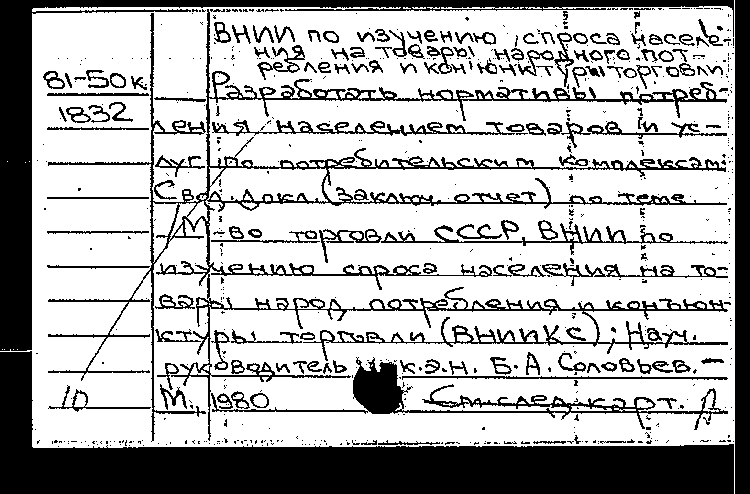 ВНИИ по изучению спроса населе-
ния на товары народного пот-
ребления и конъюнктуры торговли
81-50к
Разработать нормативы потреб-
1832
ления населением товаров и ус-
луг по потребительским комплексам:
Свод. докл. (заключ. отчет) по теме.
/М-во торговли СССР, ВНИИ по
изучению спроса населения на то-
вары народ. потребления и конъюн-
ктуры торговли (ВНИИКС); Науч.
руководитель к.э.н. Б.А. Соловьев. —
10 М., 1980 См. след. карт.